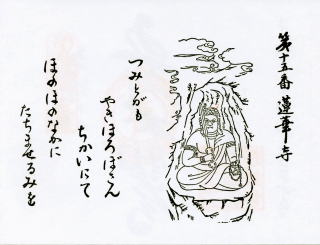 第十五番 蓮華寺
つみとがも
やきほろぼさん
ちかいにて
ほのほのなかに
たちませるみを